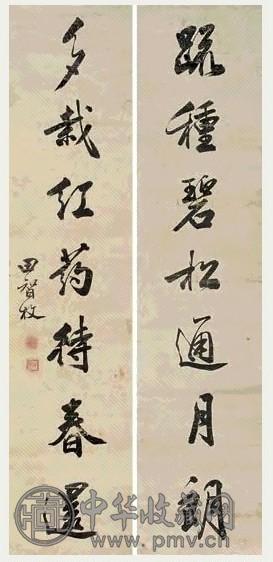 疏種碧松通月朗
多栽紅葯待春還
田智枚
中华收藏网
www.pmv.cn